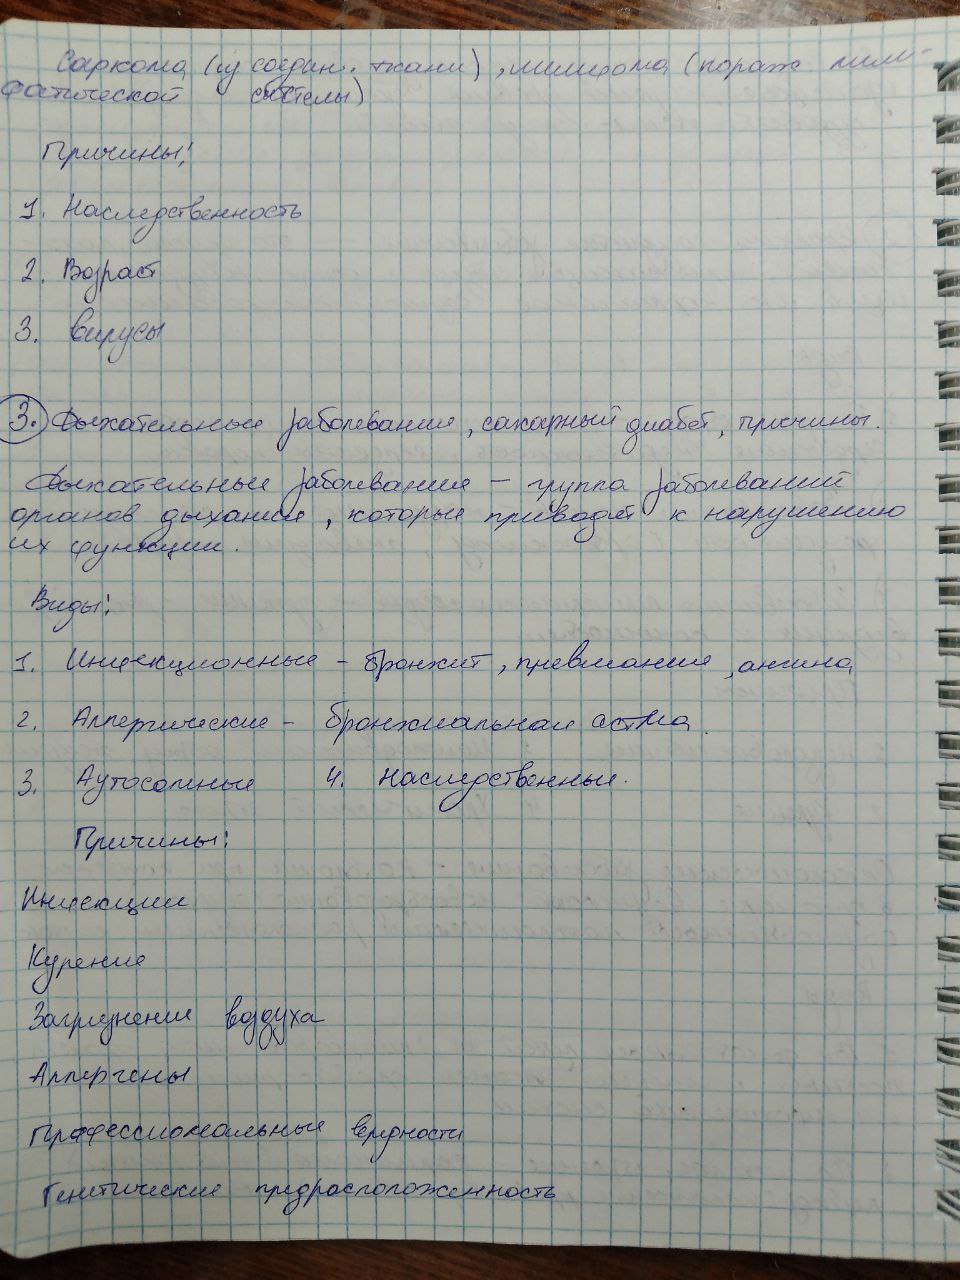 Саркома (из соедин. ткани), лимфома (пораж. лим-
фатической системы)
Причины:
1. Наследственность
2. Возраст
3. вирусы
3. Дыхательные заболевания, сахарный диабет, причины.
Дыхательные заболевания – группа заболеваний
органов дыхания, которые приводят к нарушению
их функции.
Виды:
1. Инфекционные – бронхит, пневмания, ангина
2. Аллергические – бронхиальная астма
3. Аутосомные 4. Наследственные.
Причины:
Инфекции
Курение
Загрязнение воздуха
Аллергены
Профессиональные вредности
Генетические предрасположенность